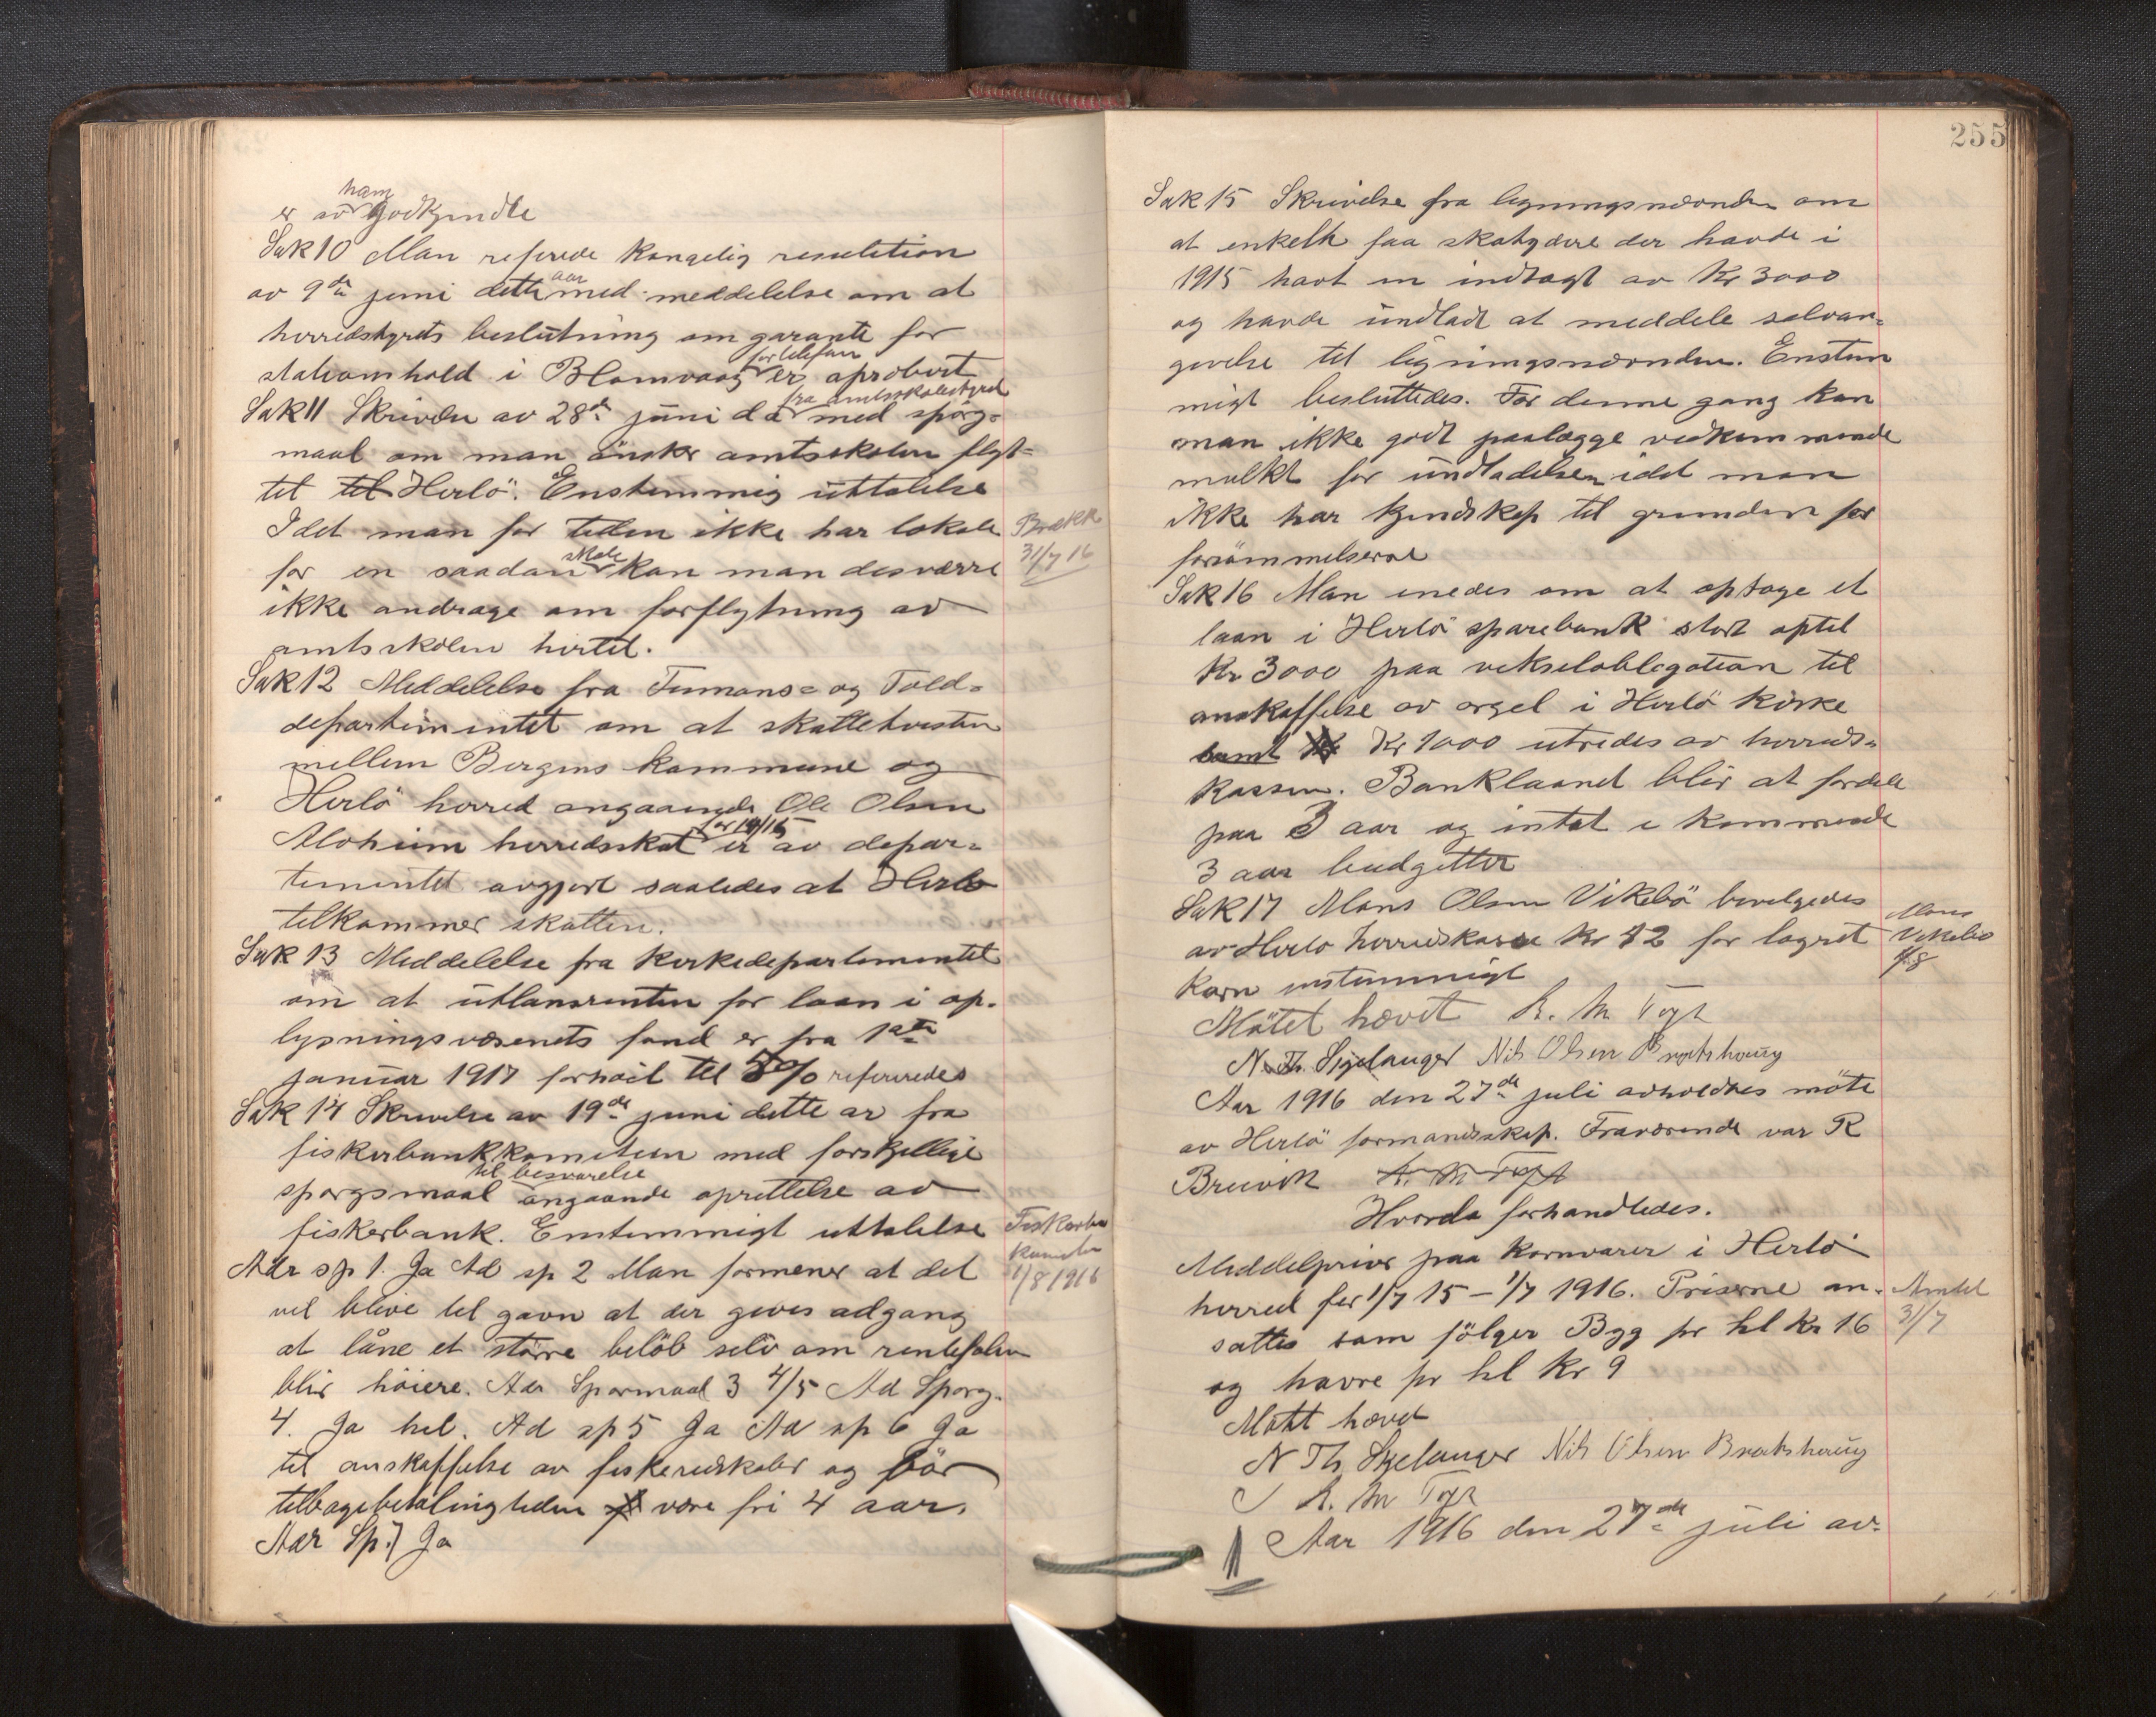 er av ham godkjendte
Sak 10 Man referede kongelig resulution
av 9de juni dette aar med meddelelse om at
herredstyrets beslutning om garante for
stationshold i Blomvaag for telefon er aprobert
Sak 11 Skrivelse av 28de juni d a fra amtsskolestyret med sporg-
maal om man ønsker amtsskolen flyt-
tet til Herlö. Enstemmig uttalelse
Idet man for tiden ikke har lokale
for en saadan skole kan man desværre
ikke andrage om forflytning av
amtsskolen hertil.
Brekk
31/7 16
Sak 12 Meddelelse fra Finans- og Told-
departementet om at skattetvisten
mellem Bergens kommune og
Herlö herred angaaende Ole Olsen
Aloheim herredsskat for 14/15 er av depar-
tementet avgjort saaledes at Herlo
tilkommer skatten.
Sak 13 Meddelelse fra Kirkedepartementet
om at utlansrenten for laan i op-
lysningsvæsenets fond er fra 1ste
januar 1917 forhöiet til 5% refereredes
Sak 14 Skrivelse av 19de juni dette ar fra
fiskerbankkomiteen med forskjellige
sporgsmaal til besvarelse angaande oprettelse av
fiskerbank. Enstemmigt uttalelse
Adr sp 1. Ja Ad sp 2 Man formener at det
vil blive til gavn at der gives adgang
at låne et större belöb selv om rentefoten
blir höiere. Adr Spormaal 3 4/5 Ad Sporg.
4. Ja hel. Ad sp 5 Ja Ad sp 6 Ja
til anskaffelse av fiskeredskaber og bör
tilbagebetalingtiden være fri 4 aar.
Adr Sp. 7 Ja
Fiskerba
Komite
1/8 1916
255
Sak 15 Skrivelse fra ligningsnævnden om
at enkelte faa skatydere der havde i
1915 havt en indtagt av Kr 3000
og havde undladt at meddele selvan-
givelse til ligningsnævnden. Enstem
migt besluttedes. For denne gang kan
man ikke godt paalægge vedkommende
mulkt for undladelsen idet man
ikke har kjendskap til grunden for
forsömmelserne
Sak 16 Man enedes om at optage et
laan i Herlö sparebank stort optil
Kr 3000 paa vekselobligation til
anskaffelse av orgel i Herlö Kirke
samt Kr 1000 utredes av herreds-
kassen. Banklaanet blir at fordele
paa 3 aar og intat i kommende
3 aar budgetter
Sak 17 Mons Olsen Vikebö bevilgedes
av Herlo herredskasse Kr 42 for lagret
Korn enstemmigt
Mons
Vikebö
1/8
Mötet hævet R. M Togt
N. Th. Skjelanger Nils Olsen Bratshaug
Aar 1916 den 27de juli avholdtes möte
av Herlö formandsskap. Fraværende var R
Breivik R. M Togt
Hvorda forhandledes.
Meddelpriser paa kornvarer i Herlö
herred for 1/7 15 – 1/7 1916. Priserne an-
sattes som fölger Byg pr hl Kr 16
og havre pr hl Kr 9
Amtet
31/7
Mötet hævet
N Th. Skjelanger Nils Olsen Bratshaug
R. M Togt
Aar 1916 den 27de juli av-